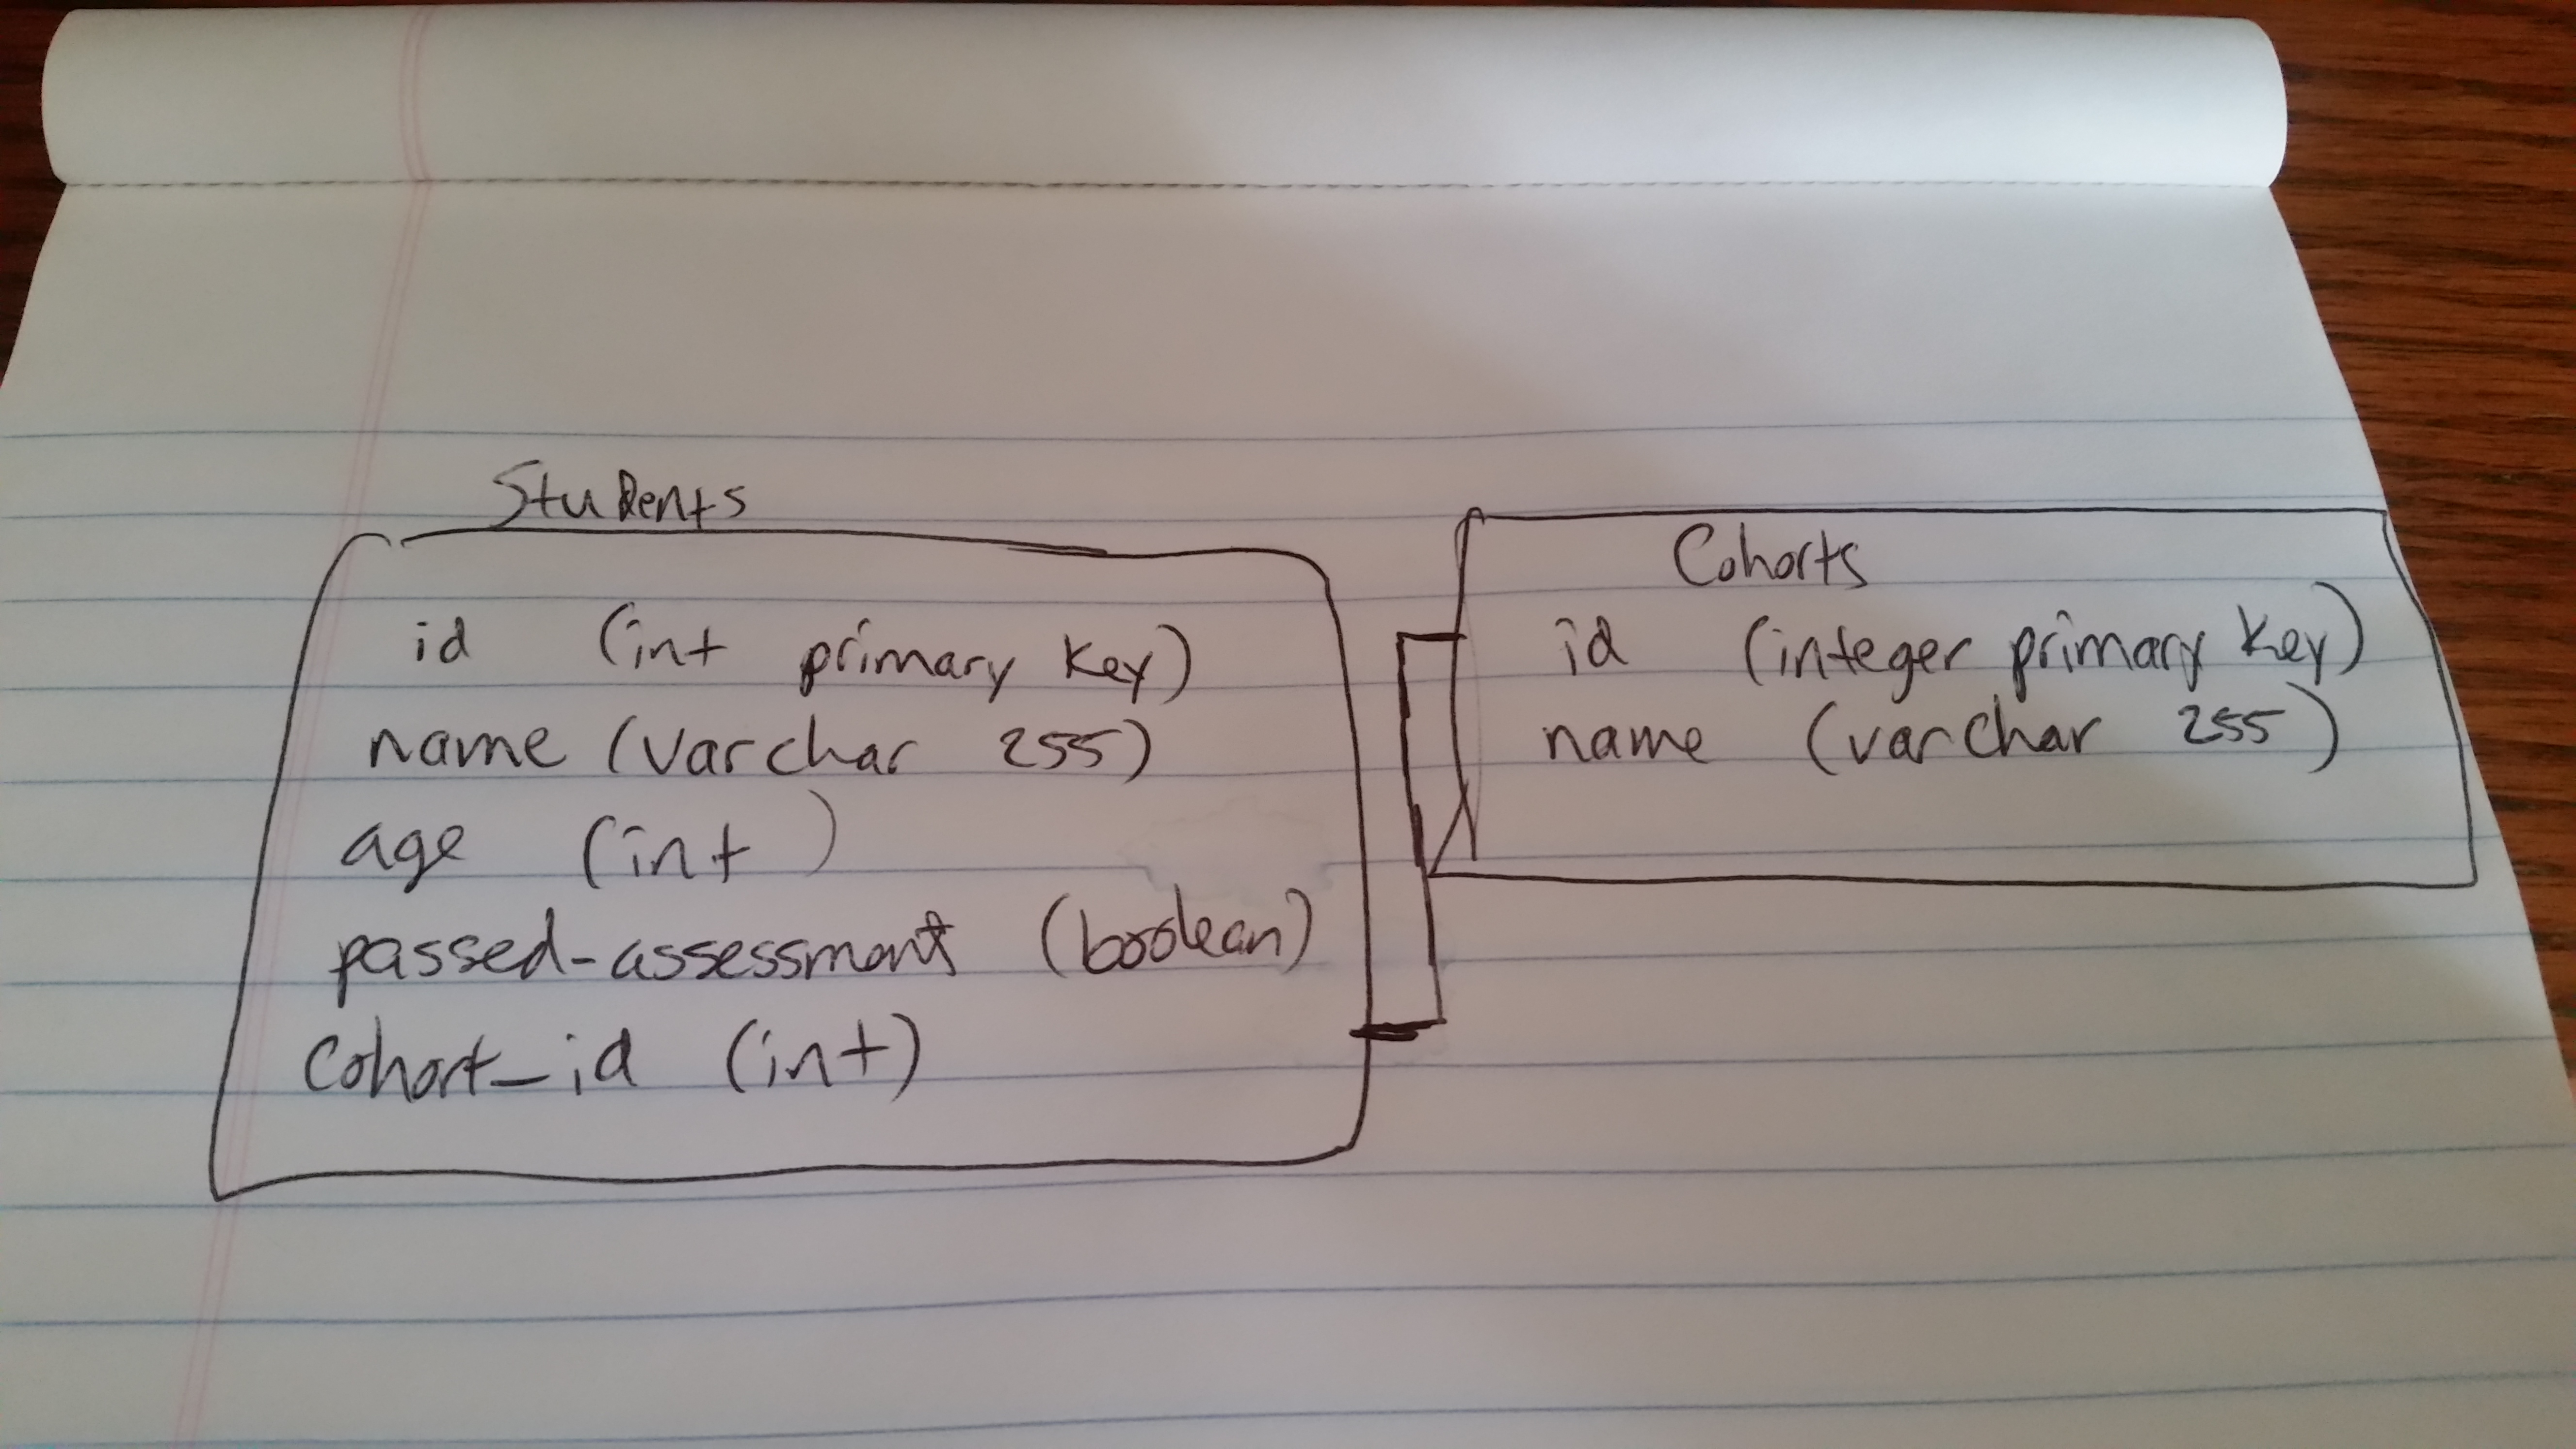 Students
id (int primary key)
name (varchar 255)
age (int)
passed-assessment (boolean)
Cohort_id (int)
Cohorts
id (integer primary key)
name (varchar 255)